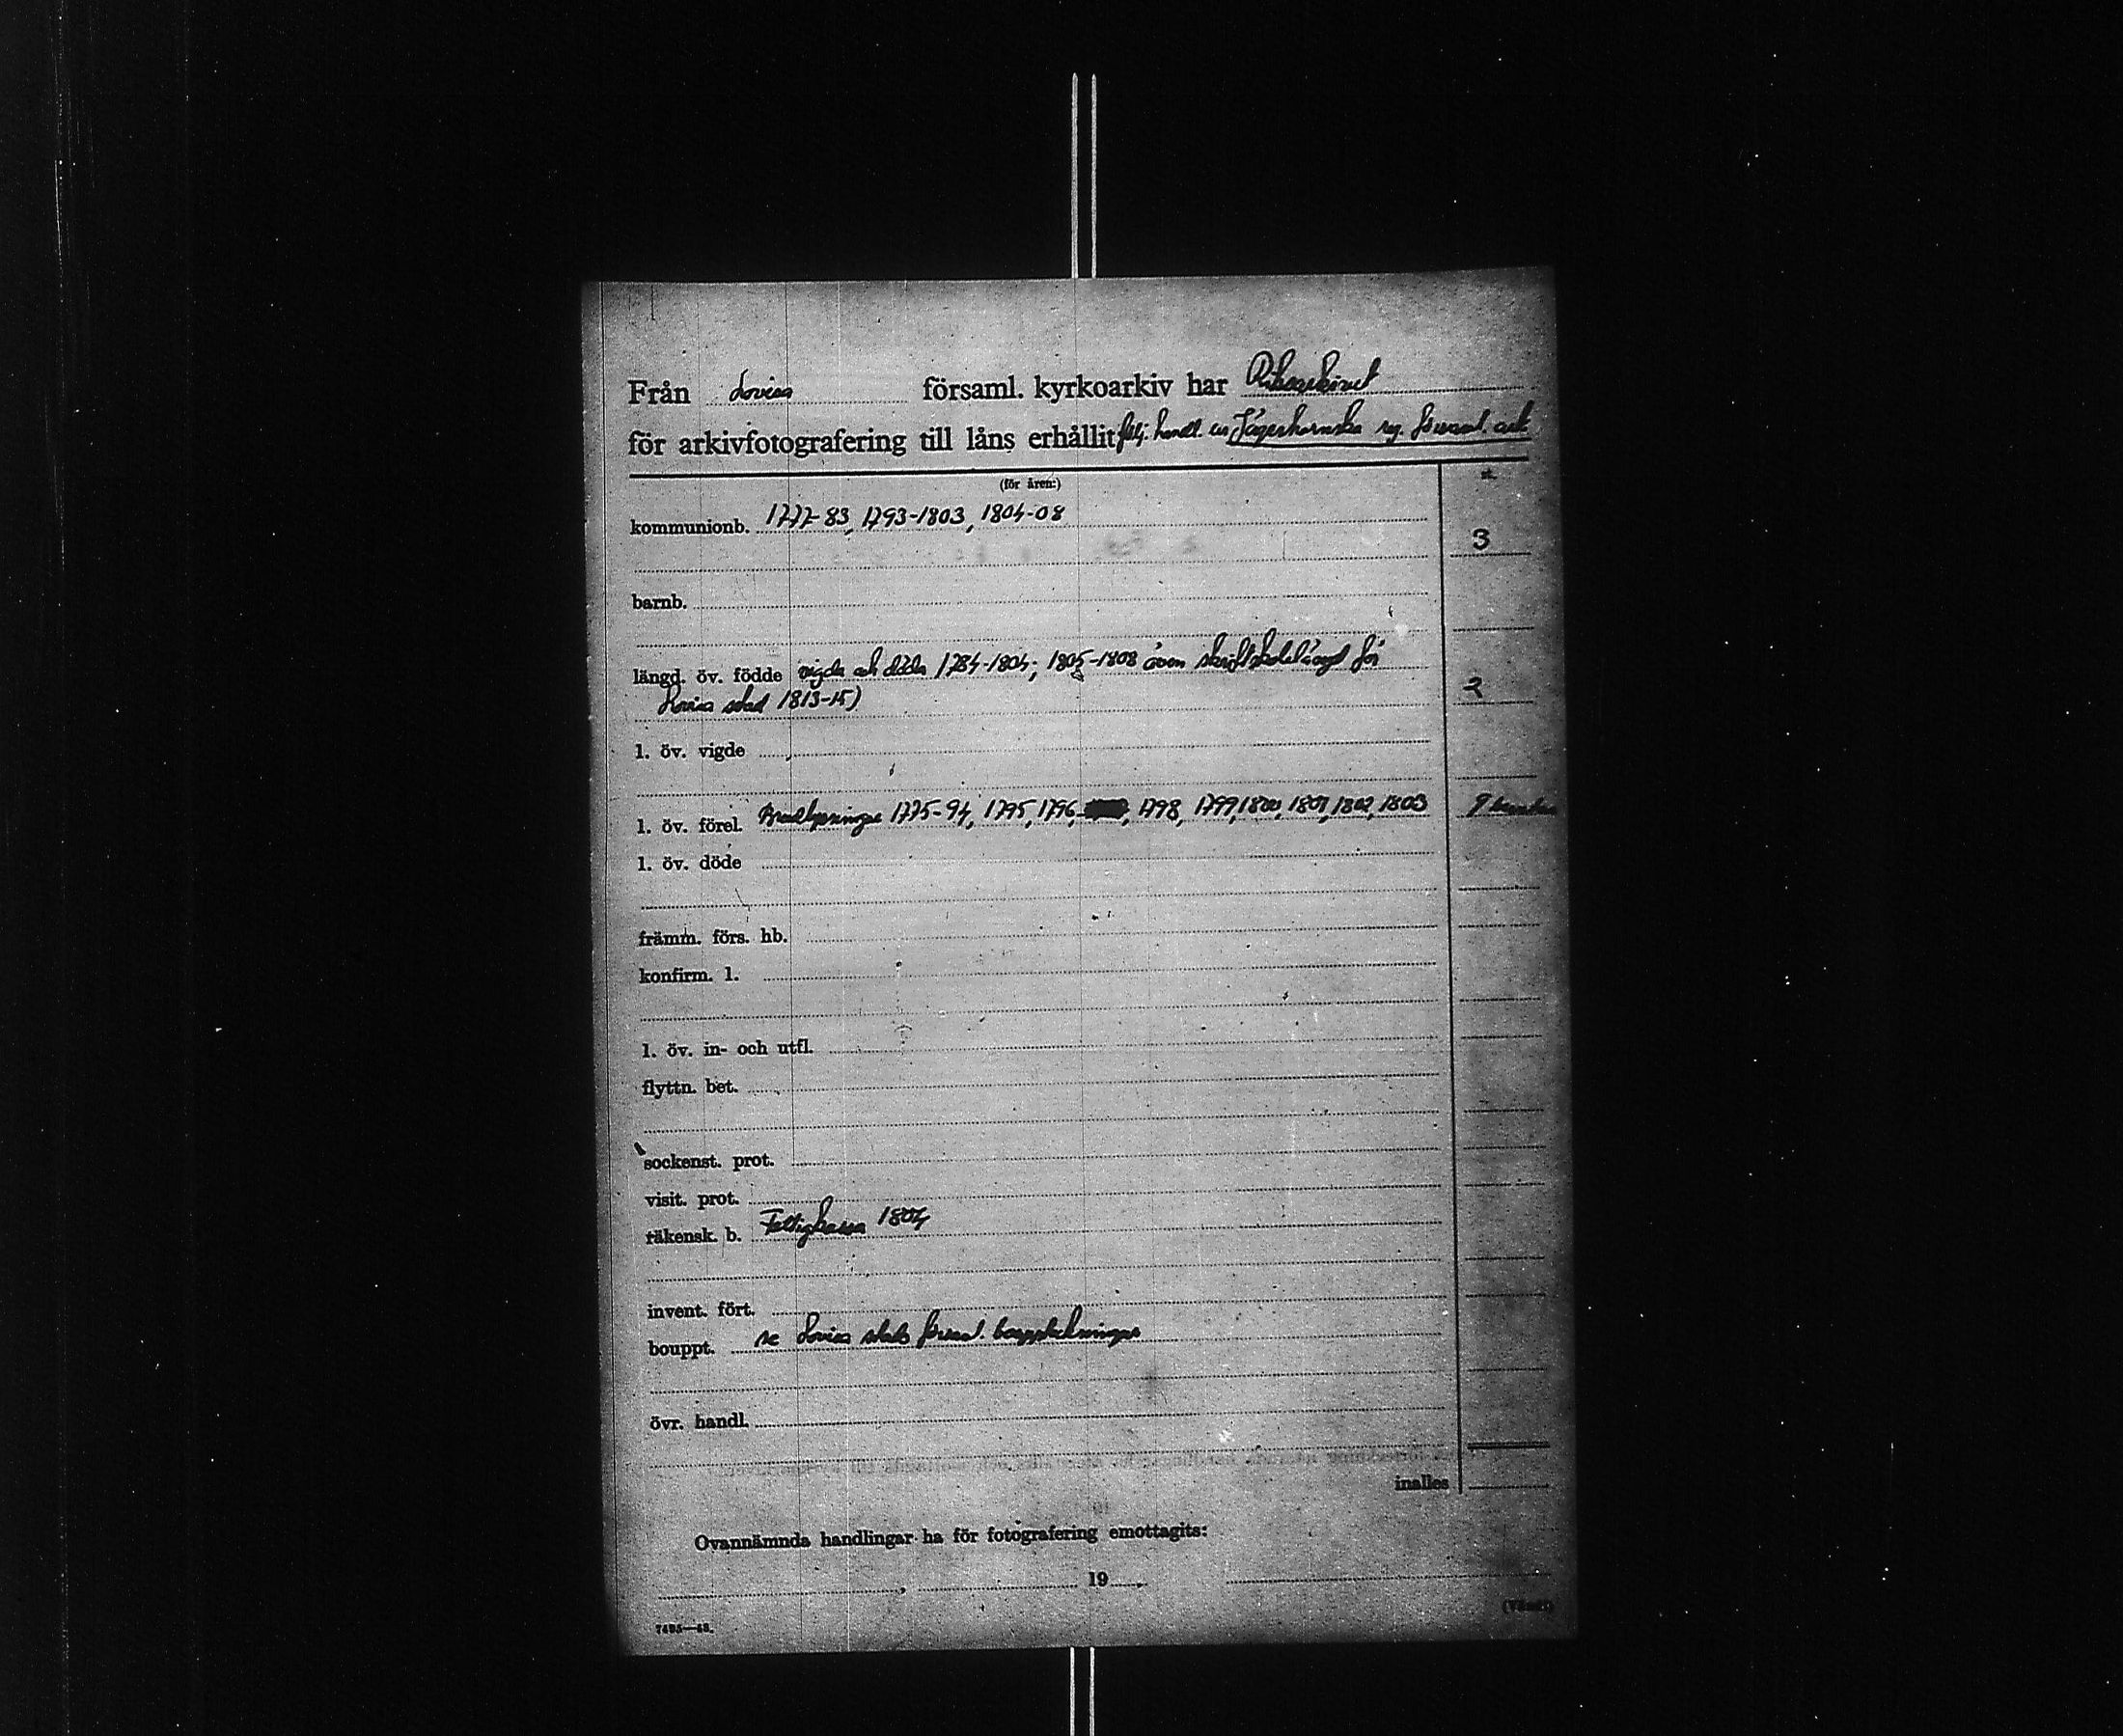 Från Lovisa församl. kyrkoarkiv har Riksarkivet
för arkivfotografering till låns erhållit följ. handl. ur Jägerhornska reg. församl. ark.
(för åren:) st.
kommunionb. 1777-83, 1793-1803, 1804-08 3
barnb.
längd. öv. födde vigda och döda 1784-1804; 1805-1808 även skriftskolelängd för
Lovisa stad 1813-15) 2
l. öv. vigde
l. öv. förel. Brudlysningar 1775-94, 1795, 1796, 1798, 1799, 1800, 1801, 1802, 1803 9
l. öv. döde
främm. förs. hb.
konfirm. l.
l. öv. in- och utfl.
flyttn. bet.
sockenst. prot.
visit. prot.
räkensk. b. Fattigkassa 1804
invent. fört.
bouppt. se Lovisa stads församl. bouppteckningar
övr. handl.
inalles
Ovannämnda handlingar ha för fotografering emottagits:
, 19
7495—48. (Vänd!)